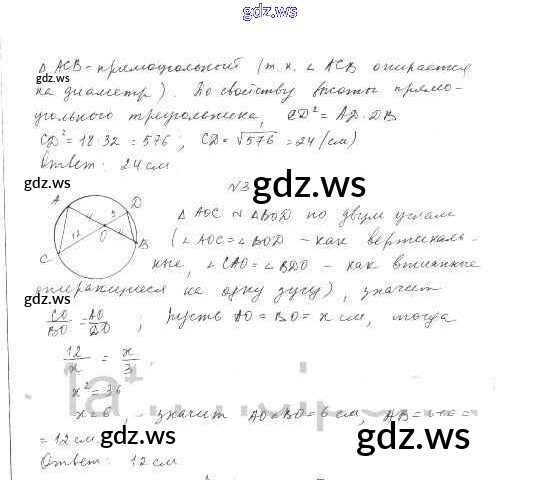 gdz.ws
Δ ACB - прямоугольный (т.к. ∠ ACB опирается
на диаметр). По свойству высоты прямо-
gdz.ws
gdz.ws
угольного треугольника, CD² = AD · DB
CD² = 18·32 = 576; CD = √576 = 24 (см)
Ответ: 24 см.
gdz.ws
N3
gdz.ws
A D x 3 O 12 x B C
Δ AOC ∾ Δ BOD по двум углам
(∠ AOC = ∠ BOD - как вертикаль-
ные, ∠ CAO = ∠ BDO - как вписанные
gdz.ws
опирающиеся на одну дугу), значит
gdz.ws
CO/BO = AO/OD ; Пусть AO = BO = x см, тогда
12/x = x/3
x² = 36
x = 6, значит AO = BO = 6 см, AB = 6+6 =
= 12 см
gdz.ws
gdz.ws
Ответ: 12 см
gdz.ws